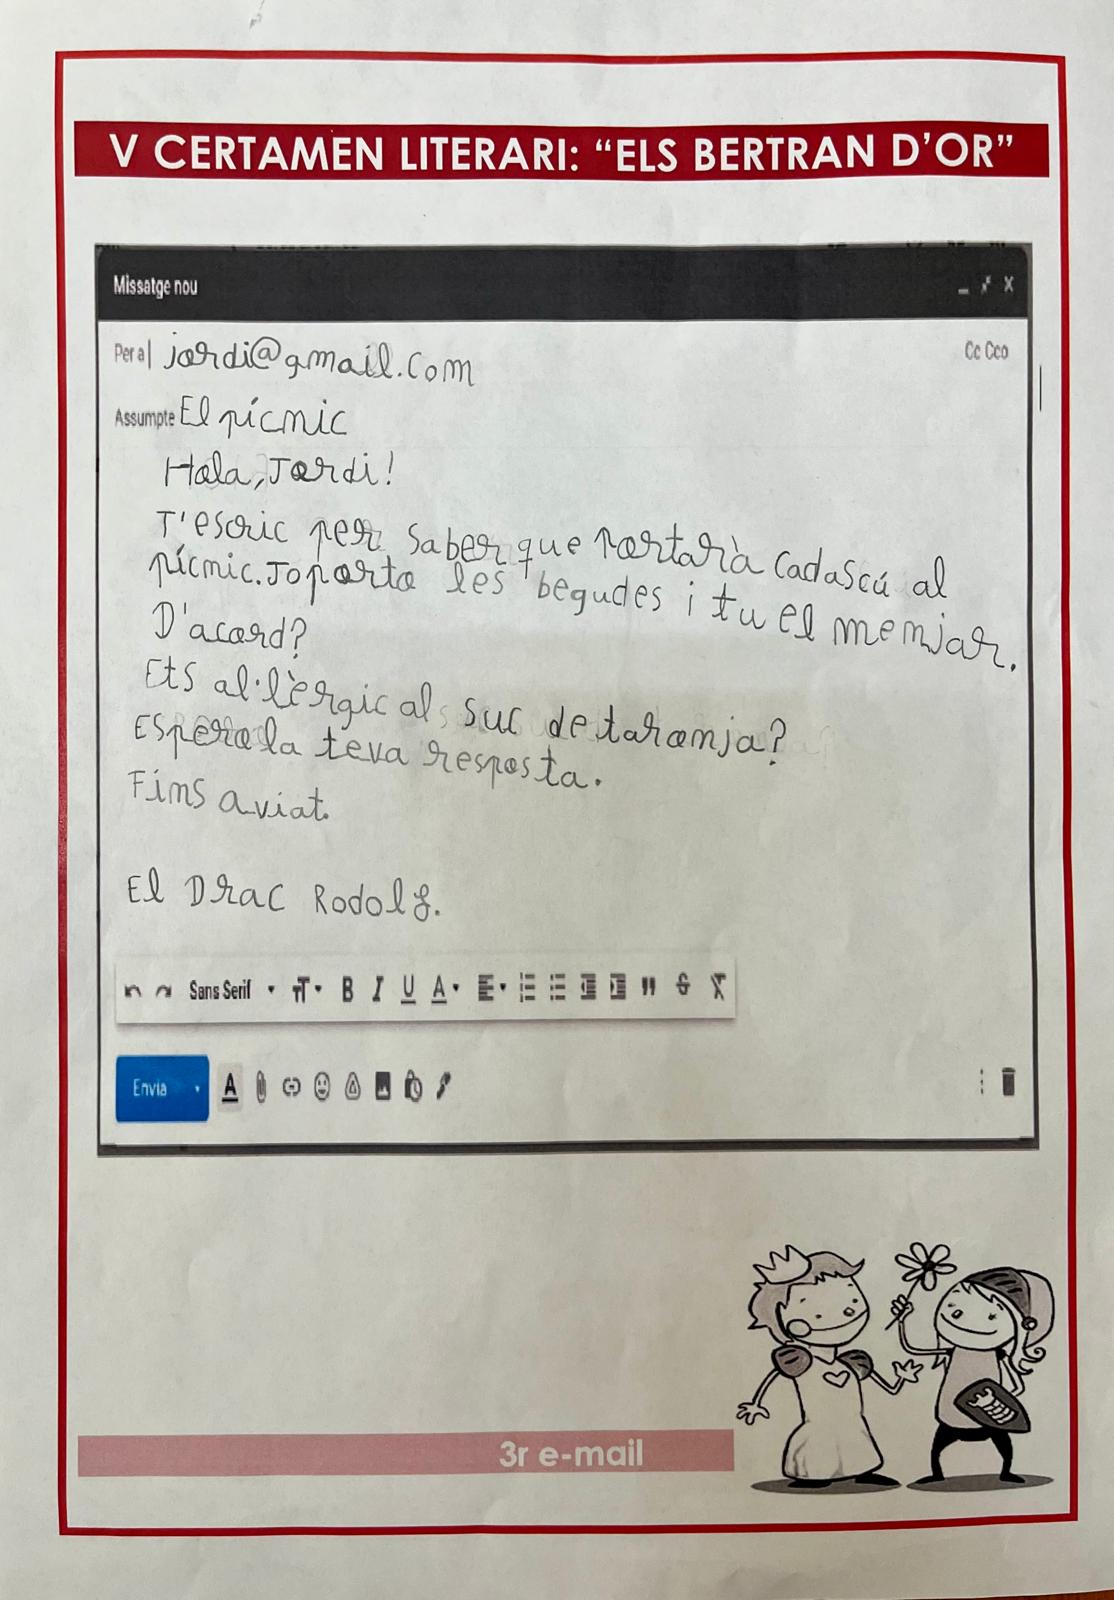 V CERTAMEN LITERARI: “ELS BERTRAN D’OR”
Missatge nou
Per a jordi@gmail.com Cc Cco
Assumpte El pícnic
Hola, Jordi!
T'escric per saber que portarà cadascú al
pícnic. Jo porto les begudes i tu el menjar.
D'acord?
Ets al·lèrgic al suc de taronja?
Espero la teva resposta.
Fins aviat.
El Drac Rodolf.
Sans Serif
Envia
3r e-mail